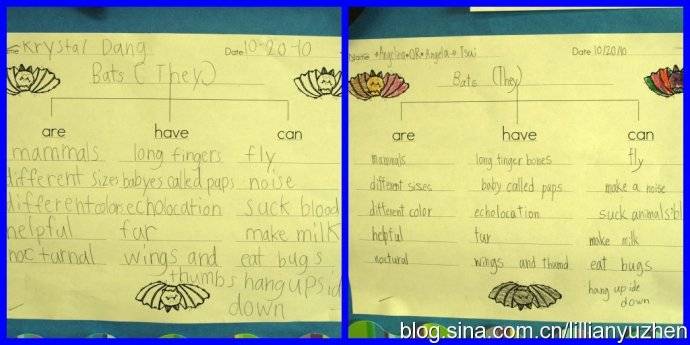 Krystal Dang
Date 10-20-10
Bats (They)
are have can
mammals long fingers fly
different sizes babyes called paps noise
different colors echolocation suck blood
helpful fur make milk
nocturnal wings and thumbs eat bugs
hang upside down
Name Angelina OR Angela Tsai
Date 10/20/10
Bats (They)
are have can
mammals long finger bones fly
different sises baby called paps make a noise
different color echolocation suck animals bl
helpful fur make milk
noctural wings and thumd eat bugs
hang upide
down
blog.sina.com.cn/lillianyuzhen